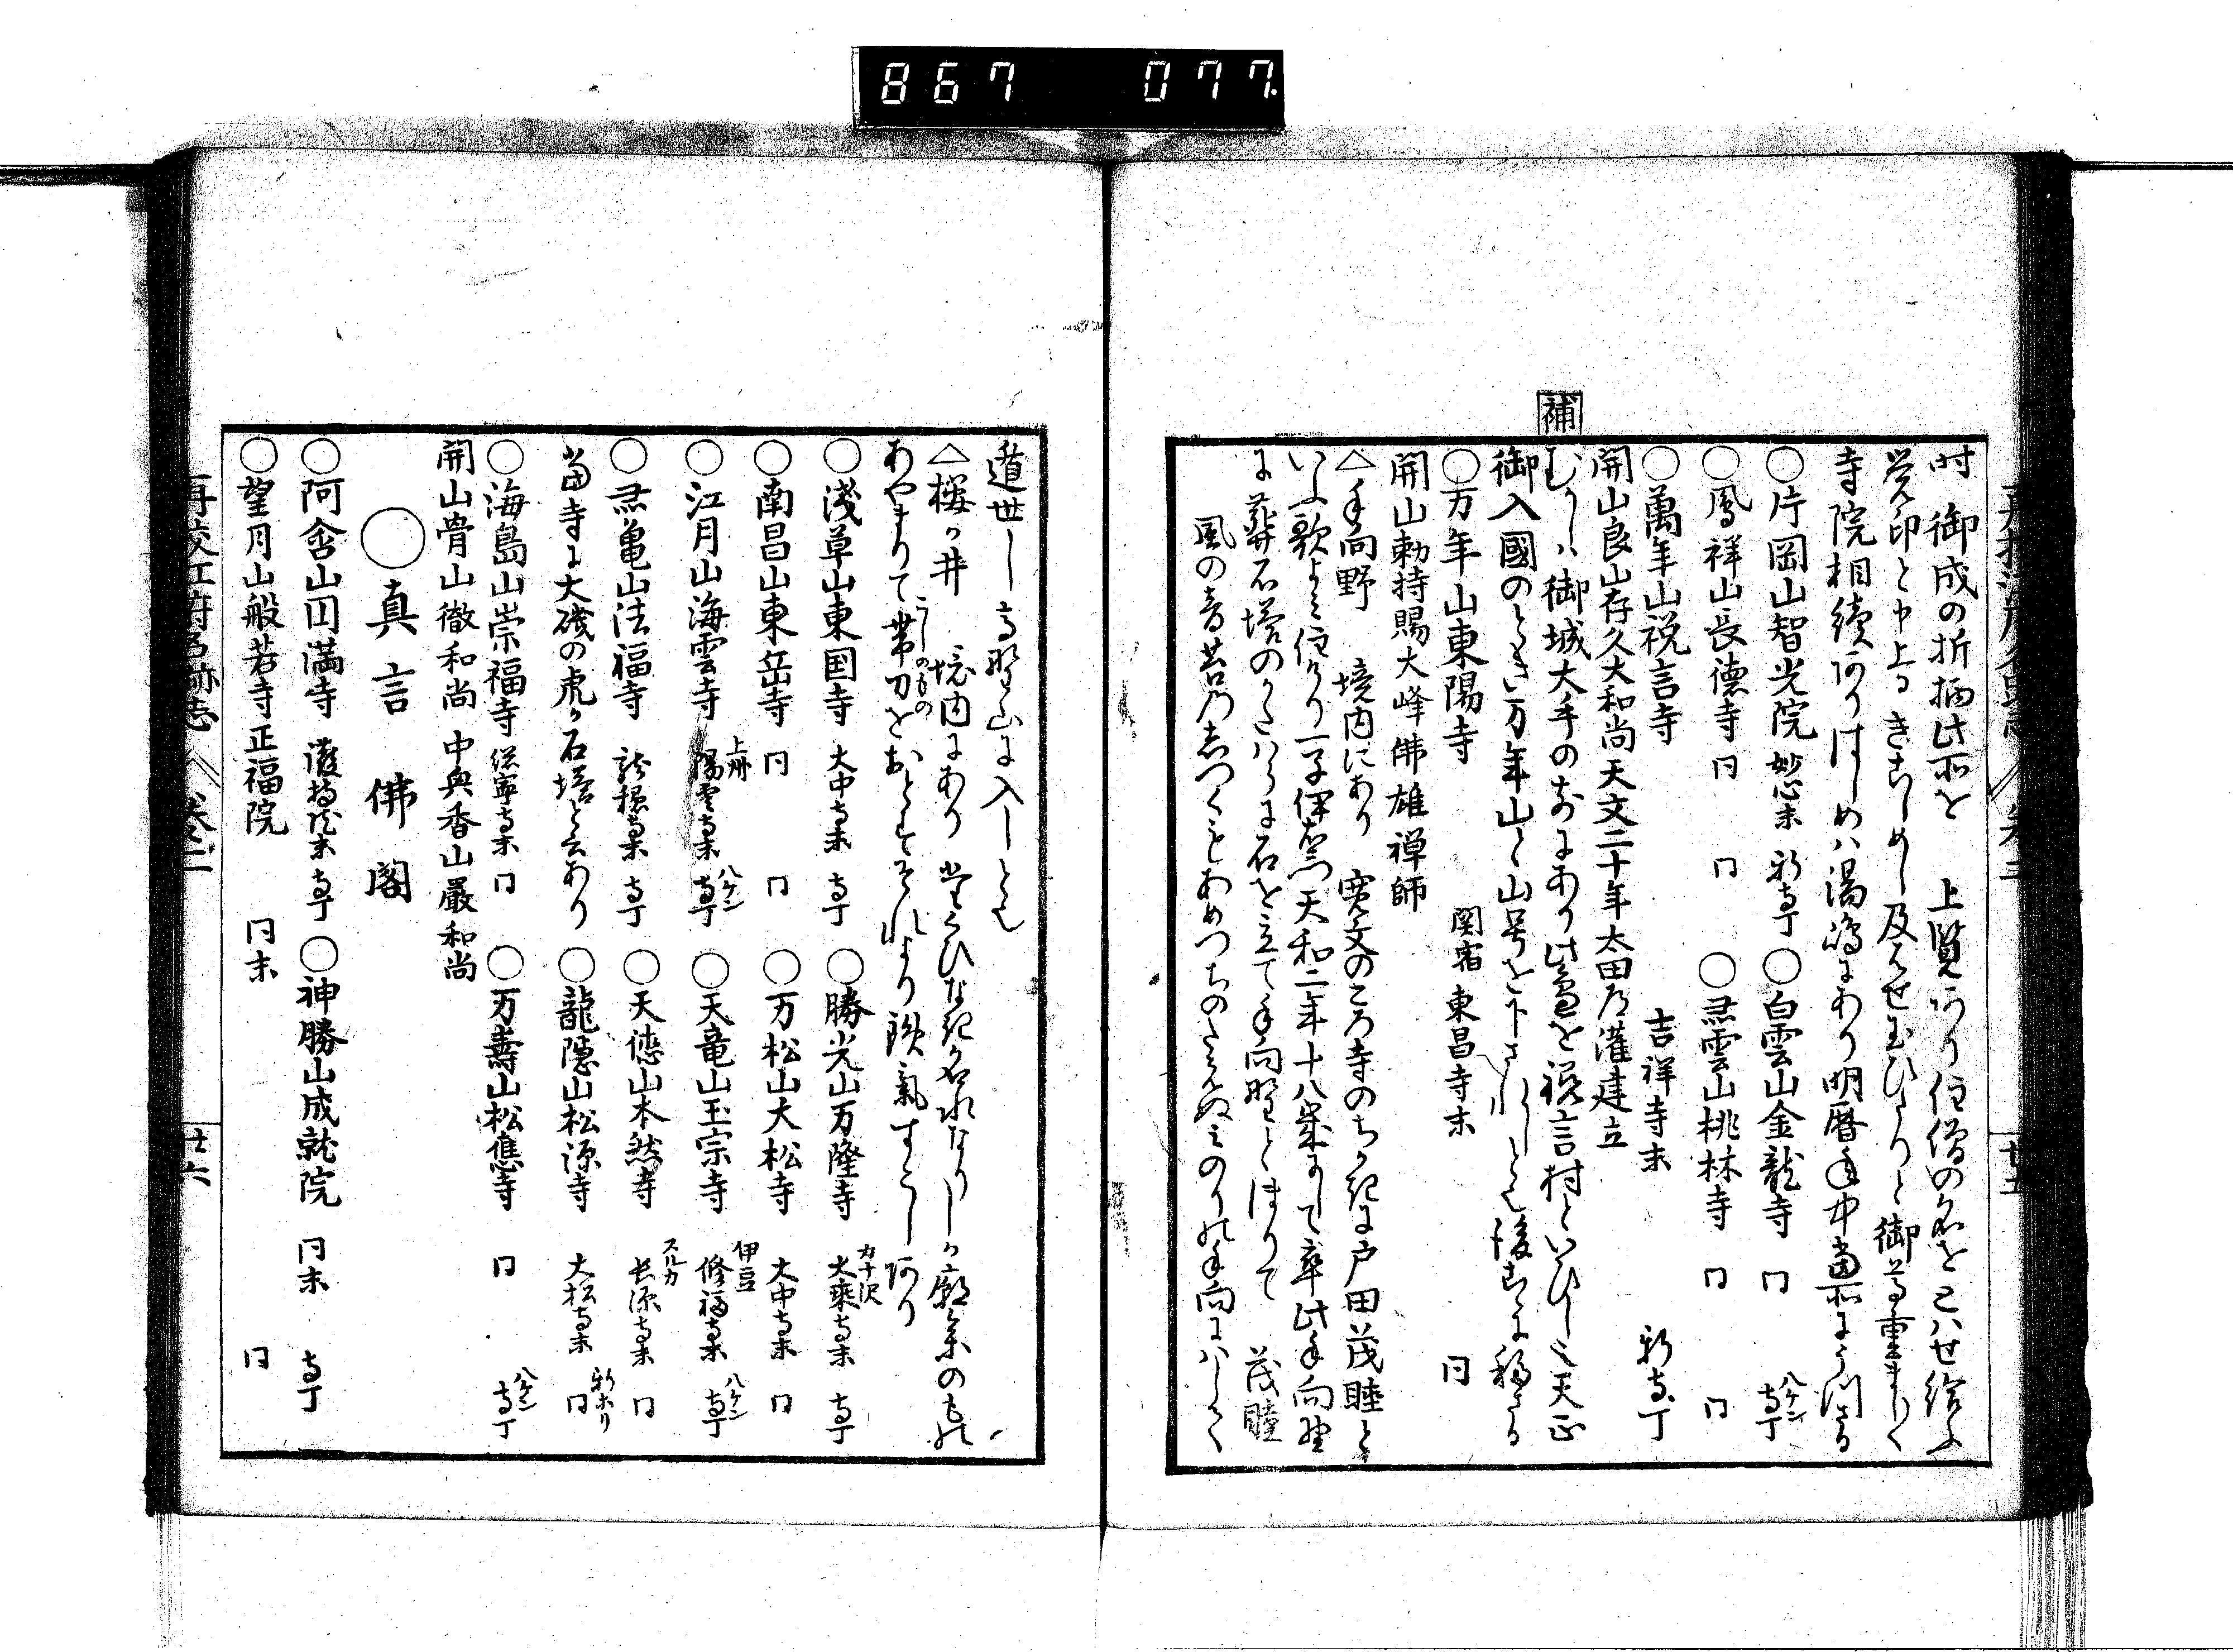 867 077.
時 御成の折柄此所を 上覧ありり住僧の名をとはせ給ふ
覚印と申上るきこしめし及はせ玉ひたりと御尊重まし〳〵
寺院相續ありはしめハ湯嶋にあり明暦年中當所にうつさる
○片岡山智光院 妙心末 新寺丁 ○白雲山金龍寺 同 八ケン寺丁
○鳳祥山長德寺 同 同 ○黒雲山桃林寺 同 同
○萬年山祝言寺 吉祥寺末 新寺丁
開山良山存久大和尚天文二十年太田道灌建立
補
むかしハ御城大手のまへにあり此邊を祝言村といひしを天正
御入國のとき万年山と山号を下されしとそ後こゝに移さる
○万年山東陽寺 関宿 東昌寺末 同
開山勅特賜大峰佛雄禅師
△手向野 境内にあり 寛文のころ寺のちかきに戸田茂睡と
いふ歌よミ住けり一子伊右衛門天和二年十八歳にして卒此手向野
に葬石塔のかたハらに石を立て手向野とほりて 茂睡
風の音苔乃しつくもあめつちのたえぬミのりの手向にハして
遁世し高野山に入しとそ
△櫻か井 境内にあり たくひなき名水なりしか厩奉のもの
うしのもの
あやまりて帯刀をおとすそれより鉄氣すこしあり
○淺草山東国寺 大中寺末 寺丁 ○勝光山万隆寺 カナ沢 大乘寺末 寺丁
○南昌山東岳寺 同 同 ○万松山大松寺 大中寺末 同
○江月山海雲寺 上州 陽雲寺末 八ケン寺丁 ○天竜山玉宗寺 伊豆 修福寺末 八ケン寺丁
○黒亀山法福寺 龍穏寺末 寺丁 ○天德山本然寺 スルカ 長源寺末 同
當寺に大磯の虎か石塔と云あり ○龍隠山松源寺 大松寺末 新ホリ 同
○海島山崇福寺 総寧寺末 同 ○万壽山松應寺 同 八ケン寺丁
開山骨山徹和尚 中興香山嚴和尚
○真言佛閣
○阿舍山円満寺 護持院末 寺丁 ○神勝山成就院 同末 寺丁
○望月山般若寺正福院 同末 同
再校江府名跡志 卷三 廿六